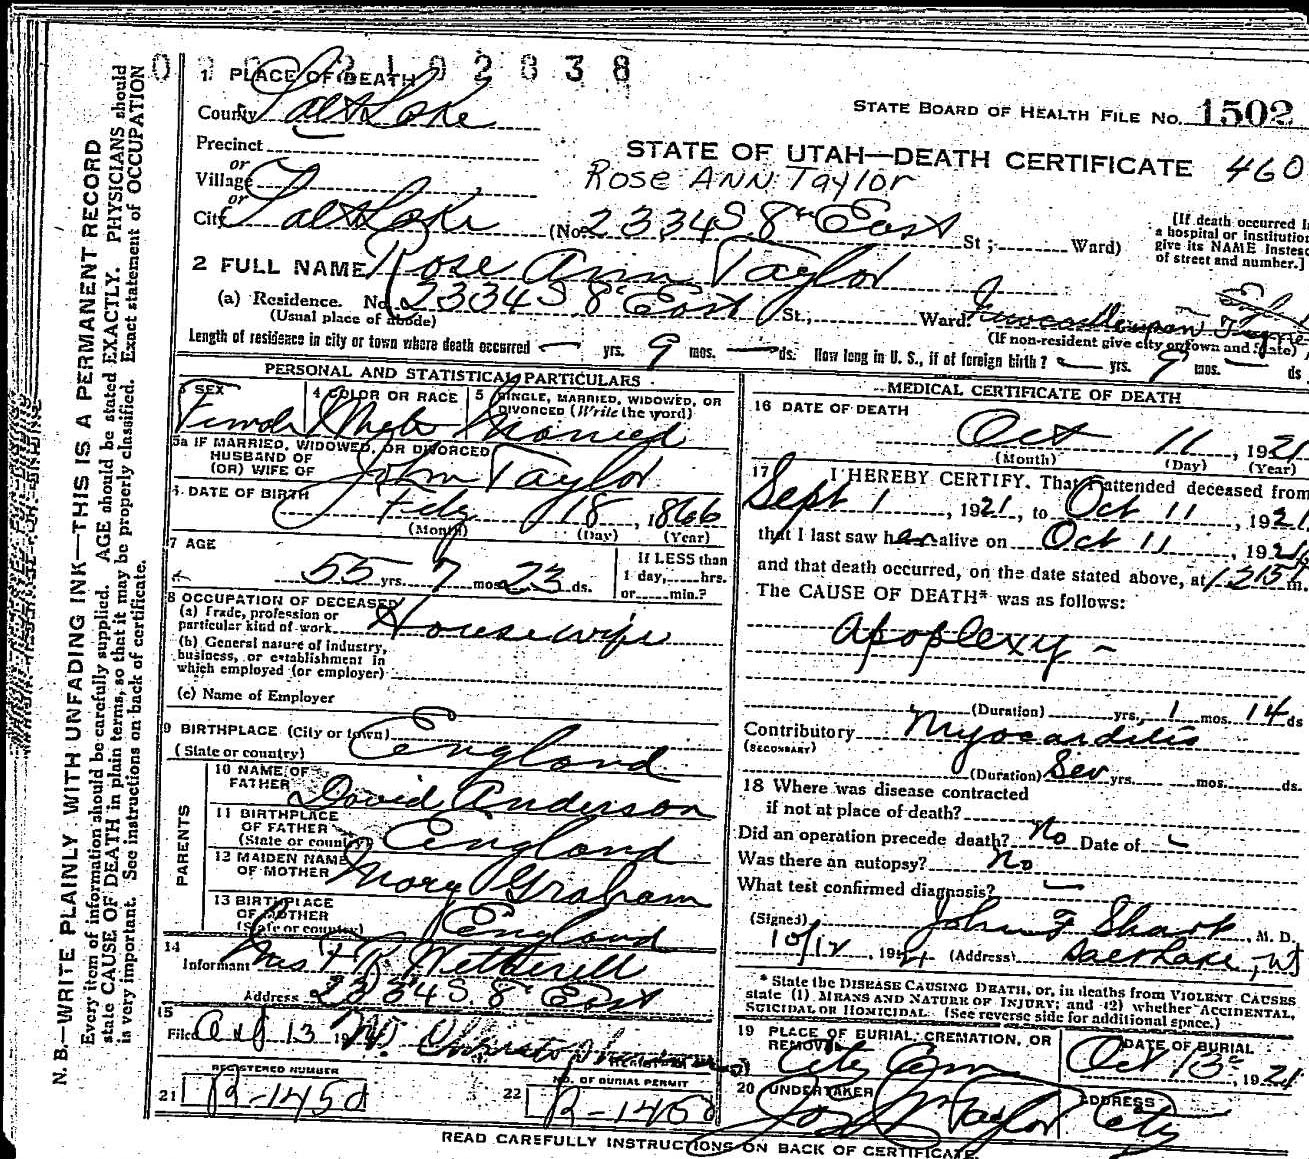 0 2102838
1 PLACE OF DEATH
County Salt Lake
STATE BOARD OF HEALTH FILE NO. 1502
Precinct
or
STATE OF UTAH—DEATH CERTIFICATE 460
Village
or
Rose ANN Taylor
City Salt Lake (No. 2334 S. 8th East St; Ward)
[If death occurred in
a hospital or institution
give its NAME instead
of street and number.]
2 FULL NAME Rose Ann Taylor
(a) Residence. No. 2334 S 8th East St., Ward.
(Usual place of abode)
(If non-resident give city or town and State)
Length of residence in city or town where death occurred — yrs. 9 mos. — ds. How long in U. S., if of foreign birth? — yrs. 9 mos. — ds
PERSONAL AND STATISTICAL PARTICULARS
3 SEX
Female
4 COLOR OR RACE
White
5 SINGLE, MARRIED, WIDOWED, OR
DIVORCED (Write the word)
Married
5a IF MARRIED, WIDOWED, OR DIVORCED
HUSBAND OF
(OR) WIFE OF
John Taylor
6. DATE OF BIRTH
Feby 18, 1866
(Month) (Day) (Year)
7 AGE
55 yrs. 7 mos. 23 ds.
If LESS than
1 day, hrs.
or min.?
8 OCCUPATION OF DECEASED
(a) Trade, profession or
particular kind of work Housewife
(b) General nature of industry,
business, or establishment in
which employed (or employer)
(c) Name of Employer
9 BIRTHPLACE (City or town)
(State or country) England
PARENTS
10 NAME OF
FATHER David Anderson
11 BIRTHPLACE
OF FATHER
(State or country) England
12 MAIDEN NAME
OF MOTHER Mary Graham
13 BIRTHPLACE
OF MOTHER
(State or country) England
14
Informant Mrs F R Wetherell
Address 2334 S 8th East
15
Filed Oct 13 19
REGISTERED NUMBER
21 R-1450
22 NO. OF BURIAL PERMIT
R-1450
MEDICAL CERTIFICATE OF DEATH
16 DATE OF DEATH
Oct 11, 1921
(Month) (Day) (Year)
17 I HEREBY CERTIFY, That I attended deceased from
Sept 1, 1921, to Oct 11, 1921
that I last saw her alive on Oct 11, 1921
and that death occurred, on the date stated above, at 1215 m.
The CAUSE OF DEATH* was as follows:
Apoplexy -
(Duration) yrs. 1 mos. 14 ds
Contributory Myocarditis
(SECONDARY)
(Duration) Sev yrs. mos. ds.
18 Where was disease contracted
if not at place of death?
Did an operation precede death? No Date of -
Was there an autopsy? No
What test confirmed diagnosis? —
(Signed) John F Sharp, M. D.
10/12, 1921 (Address) Salt Lake, Ut
* State the DISEASE CAUSING DEATH, or, in deaths from VIOLENT CAUSES
state (1) MEANS AND NATURE OF INJURY; and (2) whether ACCIDENTAL,
SUICIDAL OR HOMICIDAL (See reverse side for additional space.)
19 PLACE OF BURIAL, CREMATION, OR
REMOVAL City Cem
DATE OF BURIAL
Oct 13th, 1921
20 UNDERTAKER
Jos Wm Taylor
ADDRESS
City
READ CAREFULLY INSTRUCTIONS ON BACK OF CERTIFICATE.
N. B.—WRITE PLAINLY WITH UNFADING INK—THIS IS A PERMANENT RECORD
Every item of information should be carefully supplied. AGE should be stated EXACTLY. PHYSICIANS should
state CAUSE OF DEATH in plain terms, so that it may be properly classified. Exact statement of OCCUPATION
is very important. See instructions on back of certificate.